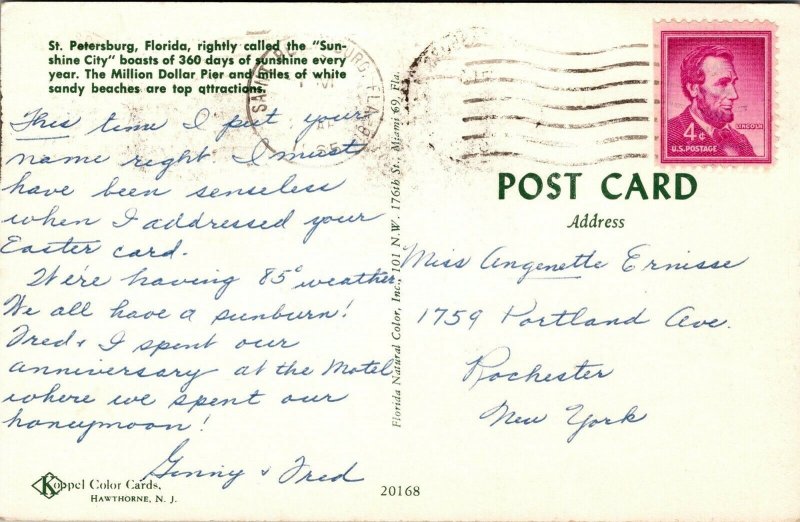 St. Petersburg, Florida, rightly called the "Sun-
shine City" boasts of 360 days of sunshine every
year. The Million Dollar Pier and miles of white
sandy beaches are top attractions.
This time I put your
name right. I must
have been senseless
when I addressed your
Easter card.
We're having 85° weather.
We all have a sunburn!
Fred & I spent our
anniversary at the Motel
where we spent our
honeymoon!
Ginny & Fred
Koppel Color Cards,
HAWTHORNE, N. J.
20168
Florida Natural Color, Inc., 101 N.W. 176th St., Miami 69, Fla.
SAINT PETERSBURG, FLA.
4¢
LINCOLN
U.S. POSTAGE
POST CARD
Address
Miss Angenette Ernisse
1759 Portland Ave.
Rochester
New York